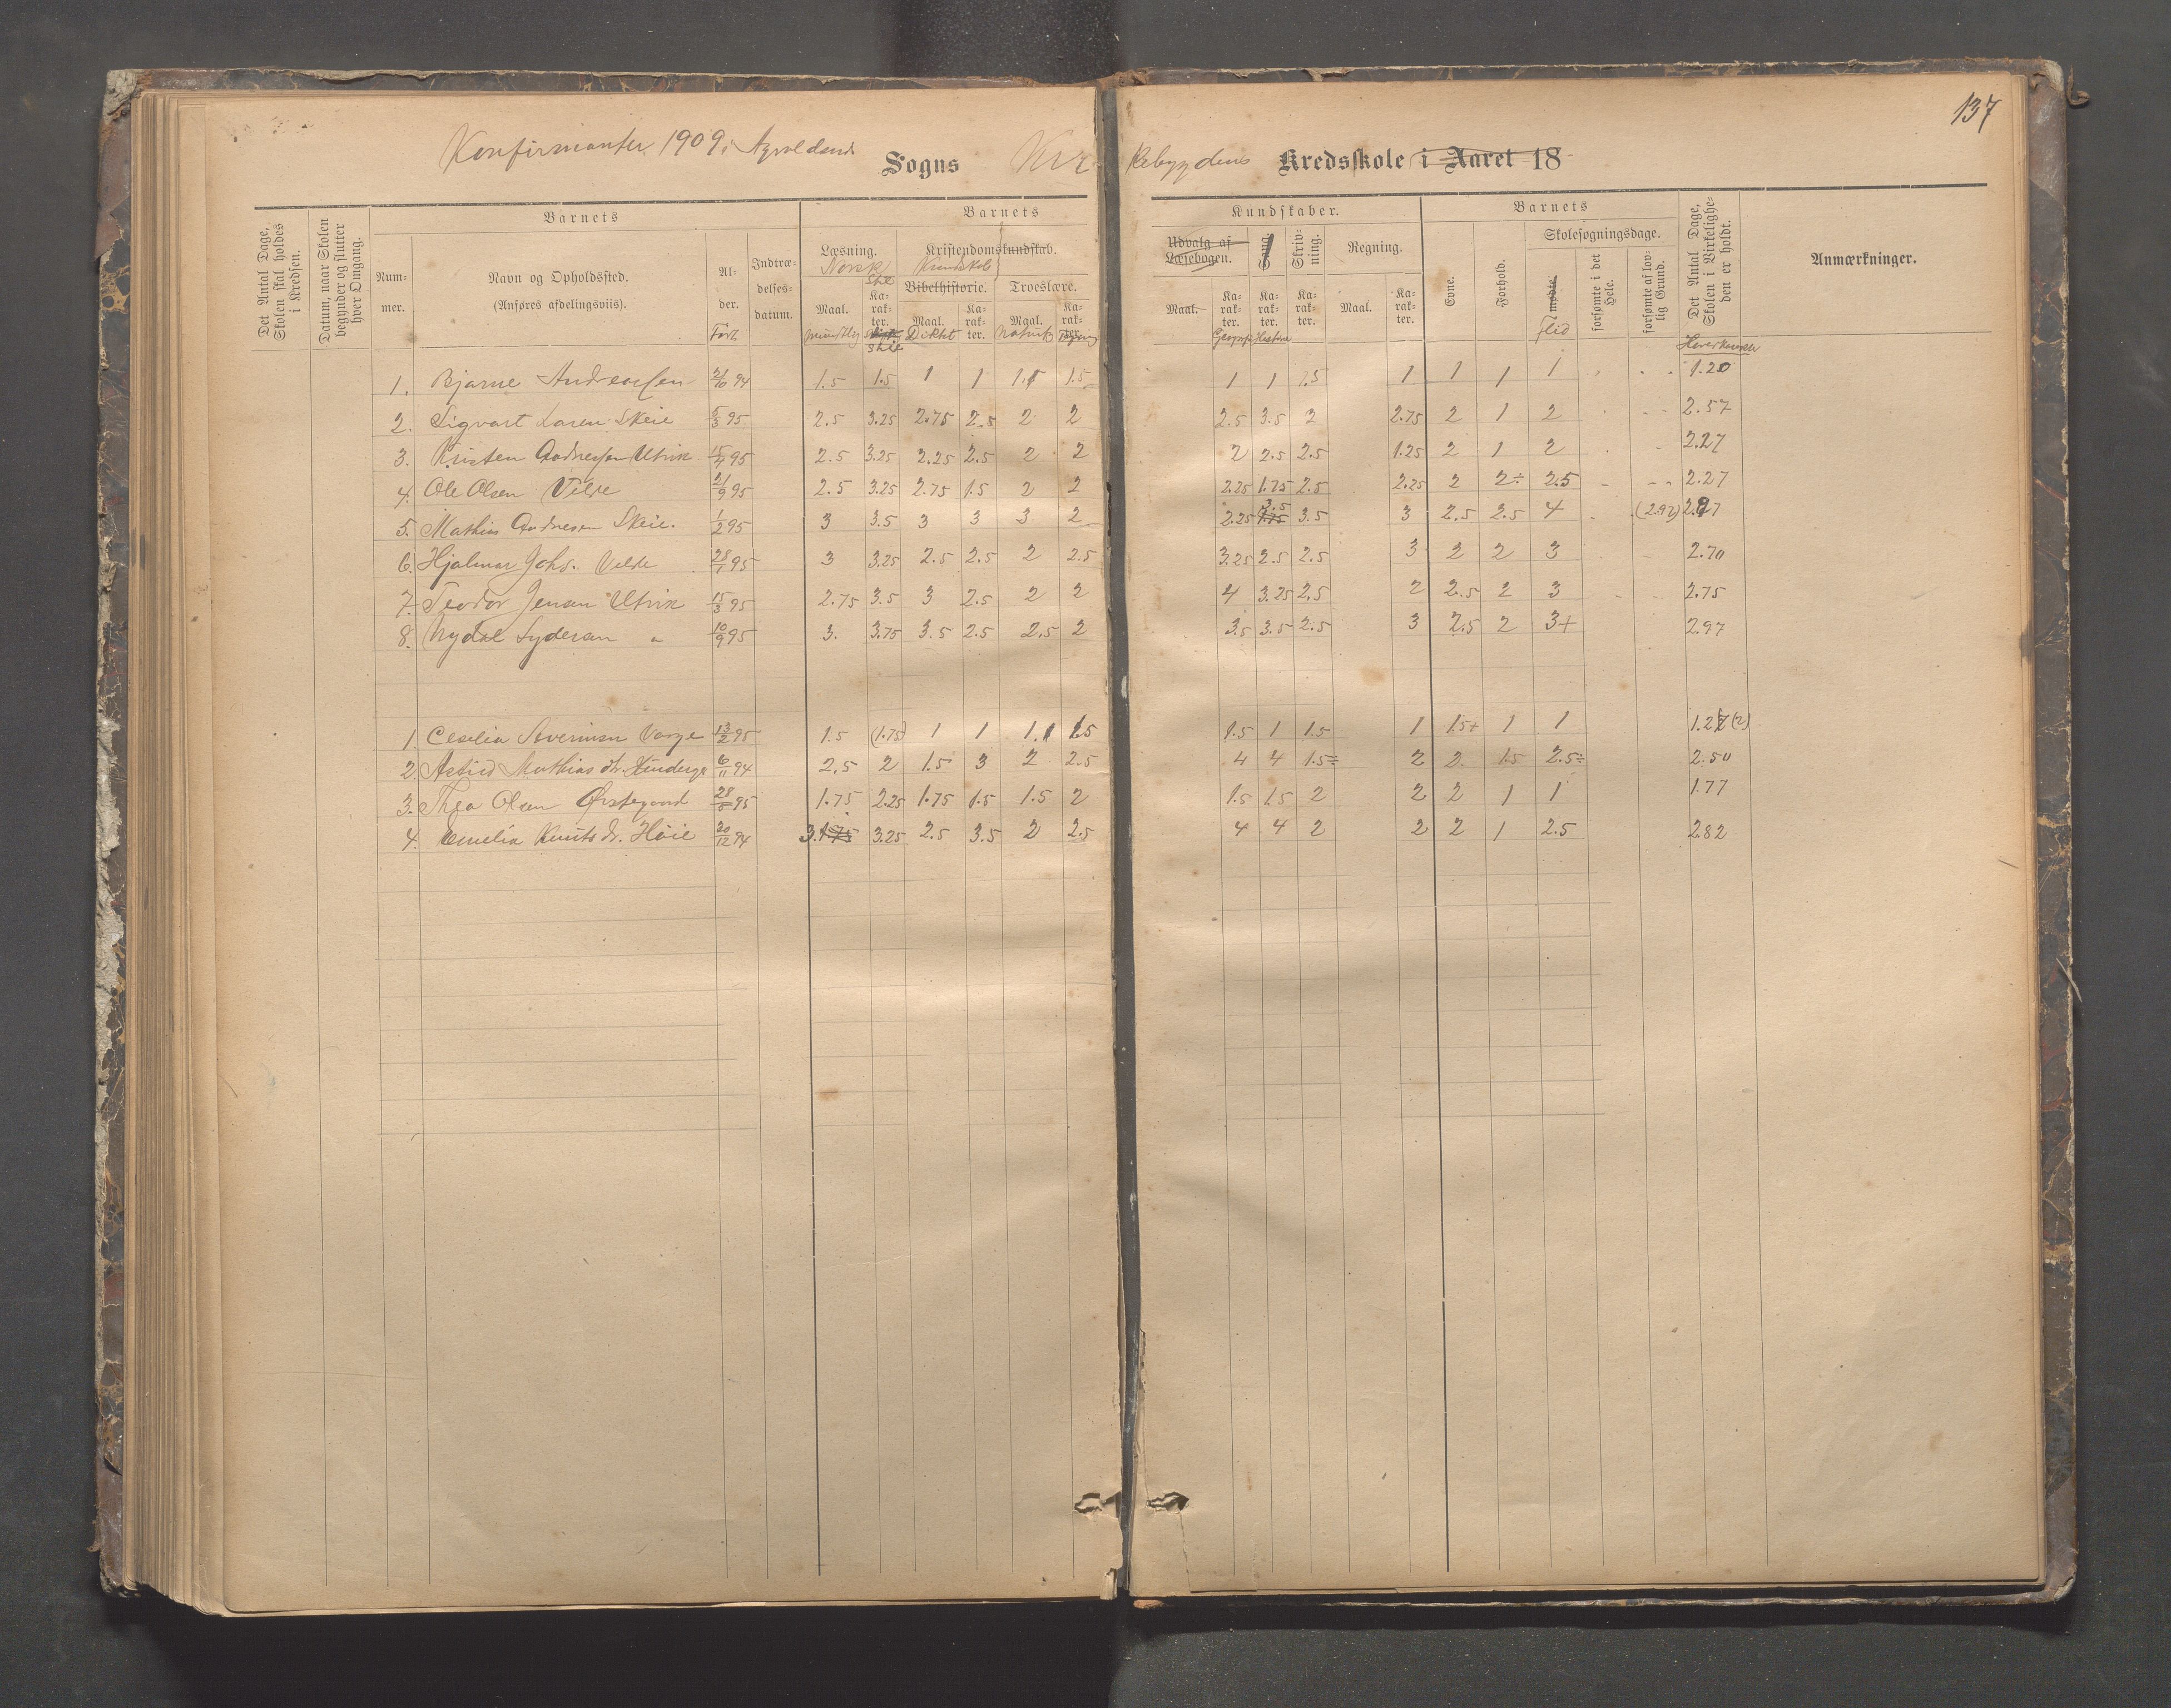 137
Konfirmanter 1909 i Sogns Kir- kebygdens Kredsskole i Aaret 18
Det Antal Dage, Skolen skal holdes i Kredsen.
Datum, naar Skolen begynder og slutter hver Omgang.
Barnets
Num-mer.
Navn og Opholdssted.
(Anføres afdelingsviis).
Al-der.
Født
Indtræ-delses-datum.
Barnets
Læsning.
Norsk
Maal.
mundtlig
Ka-rak-ter.
Stil
Kristendomskundskab.
Kundskab
Bibelhistorie.
Maal.
Diktat
Ka-rak-ter.
Troeslære.
Maal.
Naturk
Ka-rak-ter.
Kundskaber.
Udvalg af Læsebogen.
Maal.
Ka-rak-ter.
Geografi
Sang.
Ka-rak-ter.
Historie
Skriv-ning.
Ka-rak-ter.
Regning.
Maal.
Ka-rak-ter.
Barnets
Evne.
Forhold.
Skolesøgningsdage.
mødte
Flid
forsømte i det Hele.
forsømte af lov-lig Grund.
Det Antal Dage, Skolen i Virkelighe-den er holdt.
Hovedkarakter
Anmærkninger.
1. Bjarne Andreassen 21/10 94 1.5 1.5 1 1 1.5 1.5 1 1 1.5 1 1 1 1 1.20
2. Sigvart Larsen Skeie 5/3 95 2.5 3.25 2.75 2.5 2 2 2.5 3.5 2 2.75 2 1 2 2.57
3. Kristen Andreassen Utvik 15/4 95 2.5 3.25 2.25 2.5 2 2 2 2.5 2.5 1.25 2 1 2 2.27
4. Ole Olsen Velde 21/9 95 2.5 3.25 2.75 1.5 2 2 2.25 1.75 2.5 2.25 2 2÷ 2.5 2.27
5. Mathias Andreasen Skeie. 1/2 95 3 3.5 3 3 3 2 2.25 3.5 1.75 3.5 3 2.5 2.5 4 (2.92) 2.97
6. Hjalmar Johs. Velde 28/1 95 3 3.25 2.5 2.5 2 2.5 3.25 2.5 2.5 3 2 2 3 2.70
7. Teodor Jensen Utvik 15/3 95 2.75 3.5 3 2.5 2 2 4 3.25 2.5 2 2.5 2 3 2.75
8. Sydersen " 10/9 95 3. 3.75 3.5 2.5 2.5 2 3.5 3.5 2.5 3 2.5 2 3+ 2.97
1 Cecilia Severinsen Varge 13/2 95 1.5 (1.75) 1 1 1.1 1.5 1.5 1 1.5 1 1.5+ 1 1 1.27 (2)
2 Astrid Mathias dtr. 6/11 94 2.5 2 1.5 3 2 2.5 4 4 1.5÷ 2 2. 1.5 2.5÷ 2.50
3. Thea Olsen Østegaard 28/8 95 1.75 2.25 1.75 1.5 1.5 2 1.5 1.5 2 2 2 1 1 1.77
4. Emelia Knuts dr. Høie 20/12 94 3. 1.75 3.25 2.5 3.5 2 2.5 4 4 2 2 2 1 2.5 2.82